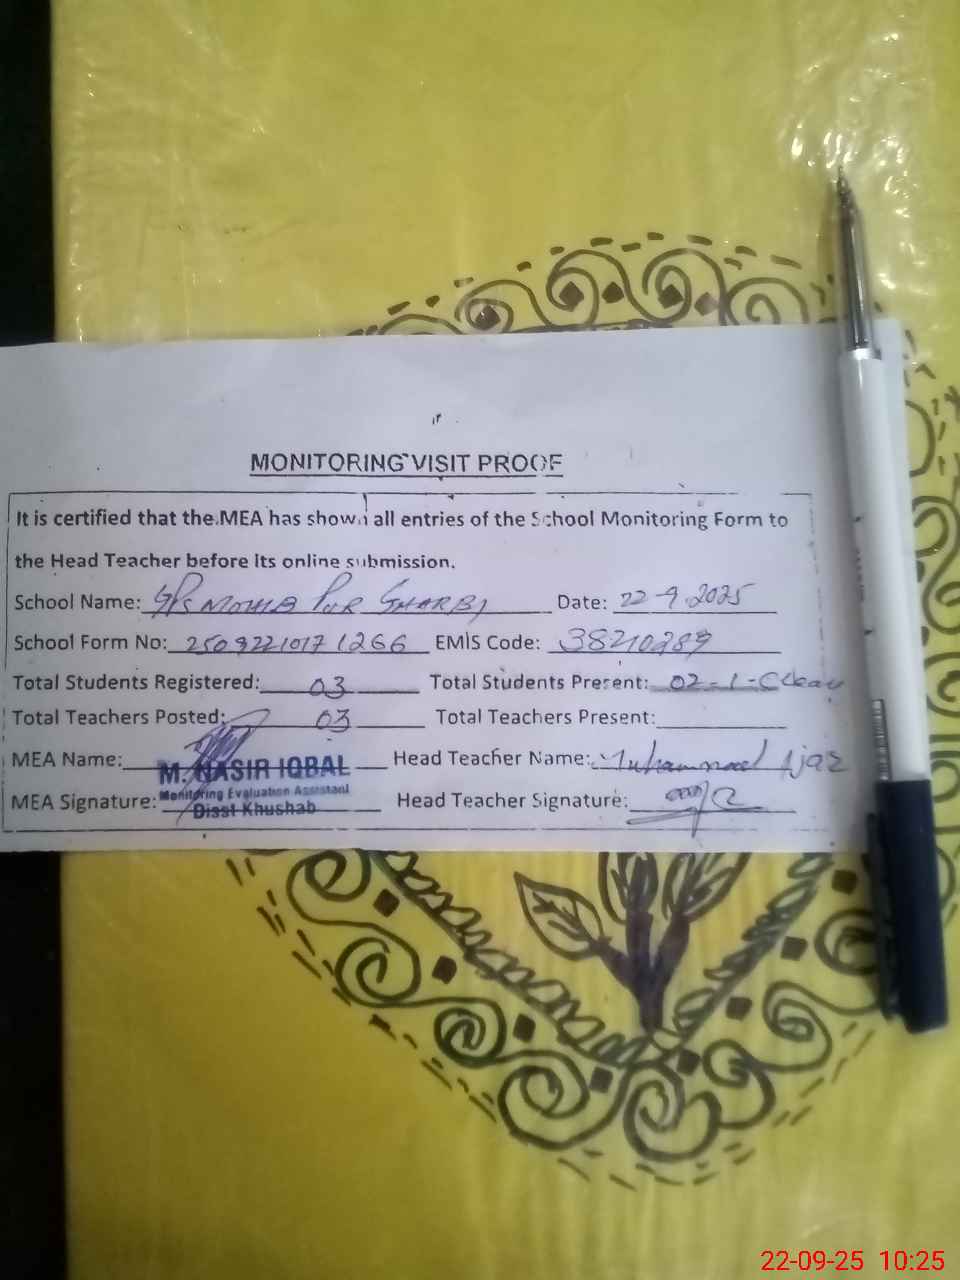 MONITORING VISIT PROOF
It is certified that the MEA has shown all entries of the School Monitoring Form to
the Head Teacher before its online submission.
School Name: GPS MOHIB PUR GHARBI Date: 22-9-2025
School Form No: EMIS Code: 38210289
Total Students Registered: 03 Total Students Present: 02-1-CLeav
Total Teachers Posted: 03 Total Teachers Present:
MEA Name: M. NASIR IQBAL Head Teacher Name: Muhammad Ijaz
Monitoring Evaluation Assistant
MEA Signature: Head Teacher Signature:
Disst Khushab
22-09-25 10:25